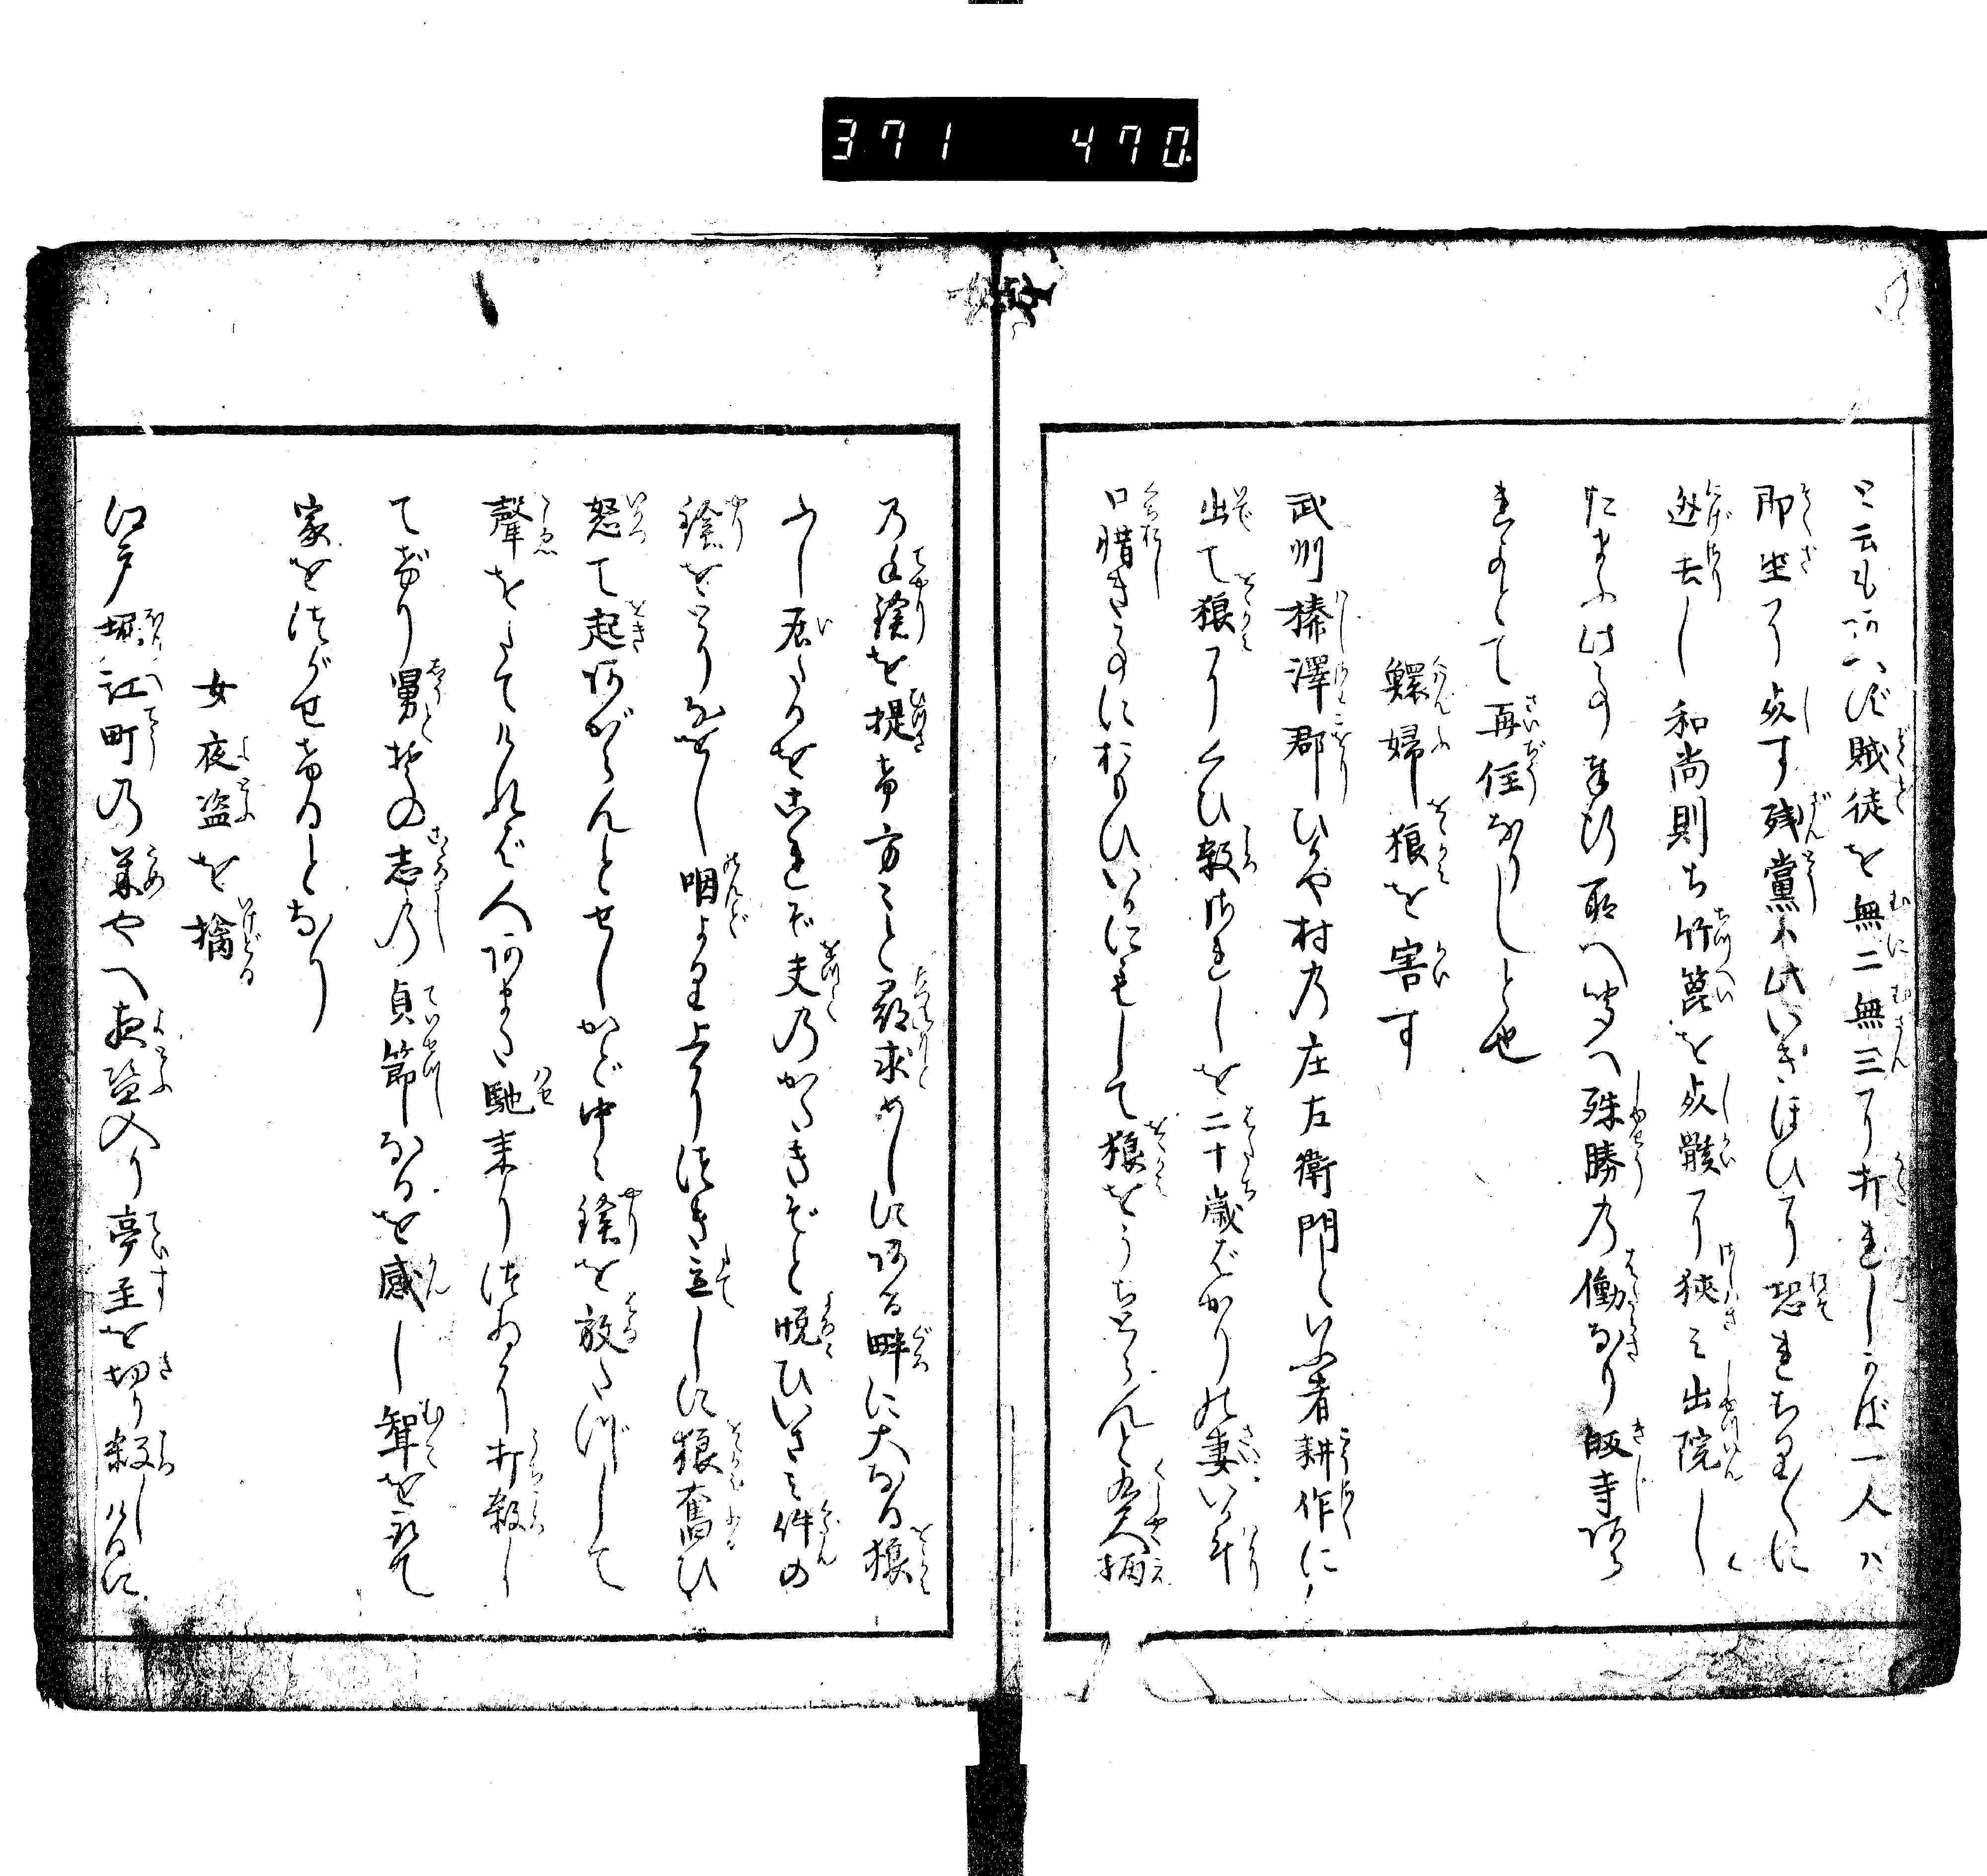 371 470
と云もあへず賊徒を無二無三に打れしかば一人ハ
即坐に死す残黨ハ此いきほひに恐れちりくに
逃去し和尚則ち竹箆を死骸に狹み出院し
たまふ此事奉行所へ聞へ殊勝の働なり皈寺あら
れよとて再住なりしと也
鰥婦狼を害す
武州榛澤郡ひや村乃庄左衛門といふ者耕作に
出て狼にくひ殺されしを二十歳ばかりの妻いか斗
口惜き事におもひいかにもして狼をうちとらんと九尺柄
乃手鎗を提け方々と尋求めしにある畔に大なる狼
ふし居たるをこれぞ夫乃かたきぞと悦ひいさみ件の
鎗をとりなをし咽より上りつき立しに狼奮ひ
怒て起あがらんとせしかど中々鎗を放たずして
聲をたてけれバ人あまた馳来りつゐに打殺し
てけり舅其の志乃貞節なるを感し聟を取て
家をつがせけるとなり
女夜盗を擒
江戸堀江町乃米やへ夜盗入り亭主を切り殺しけるに